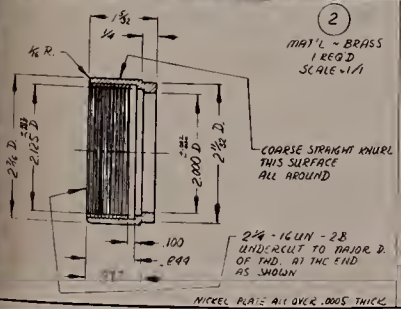 1 5/32
1/4
1/16 R.
2
MAT'L ~ BRASS
1 REQ'D
SCALE ~ 1/1
2 7/16 D.
2.125 D.
2.000 D.
2 11/32 D.
COARSE STRAIGHT KNURL
THIS SURFACE
ALL AROUND
.100
2 1/4 - 16 UN - 2B
UNDERCUT TO MAJOR D.
OF THD. AT THE END
AS SHOWN
NICKEL PLATE ALL OVER .0005 THICK